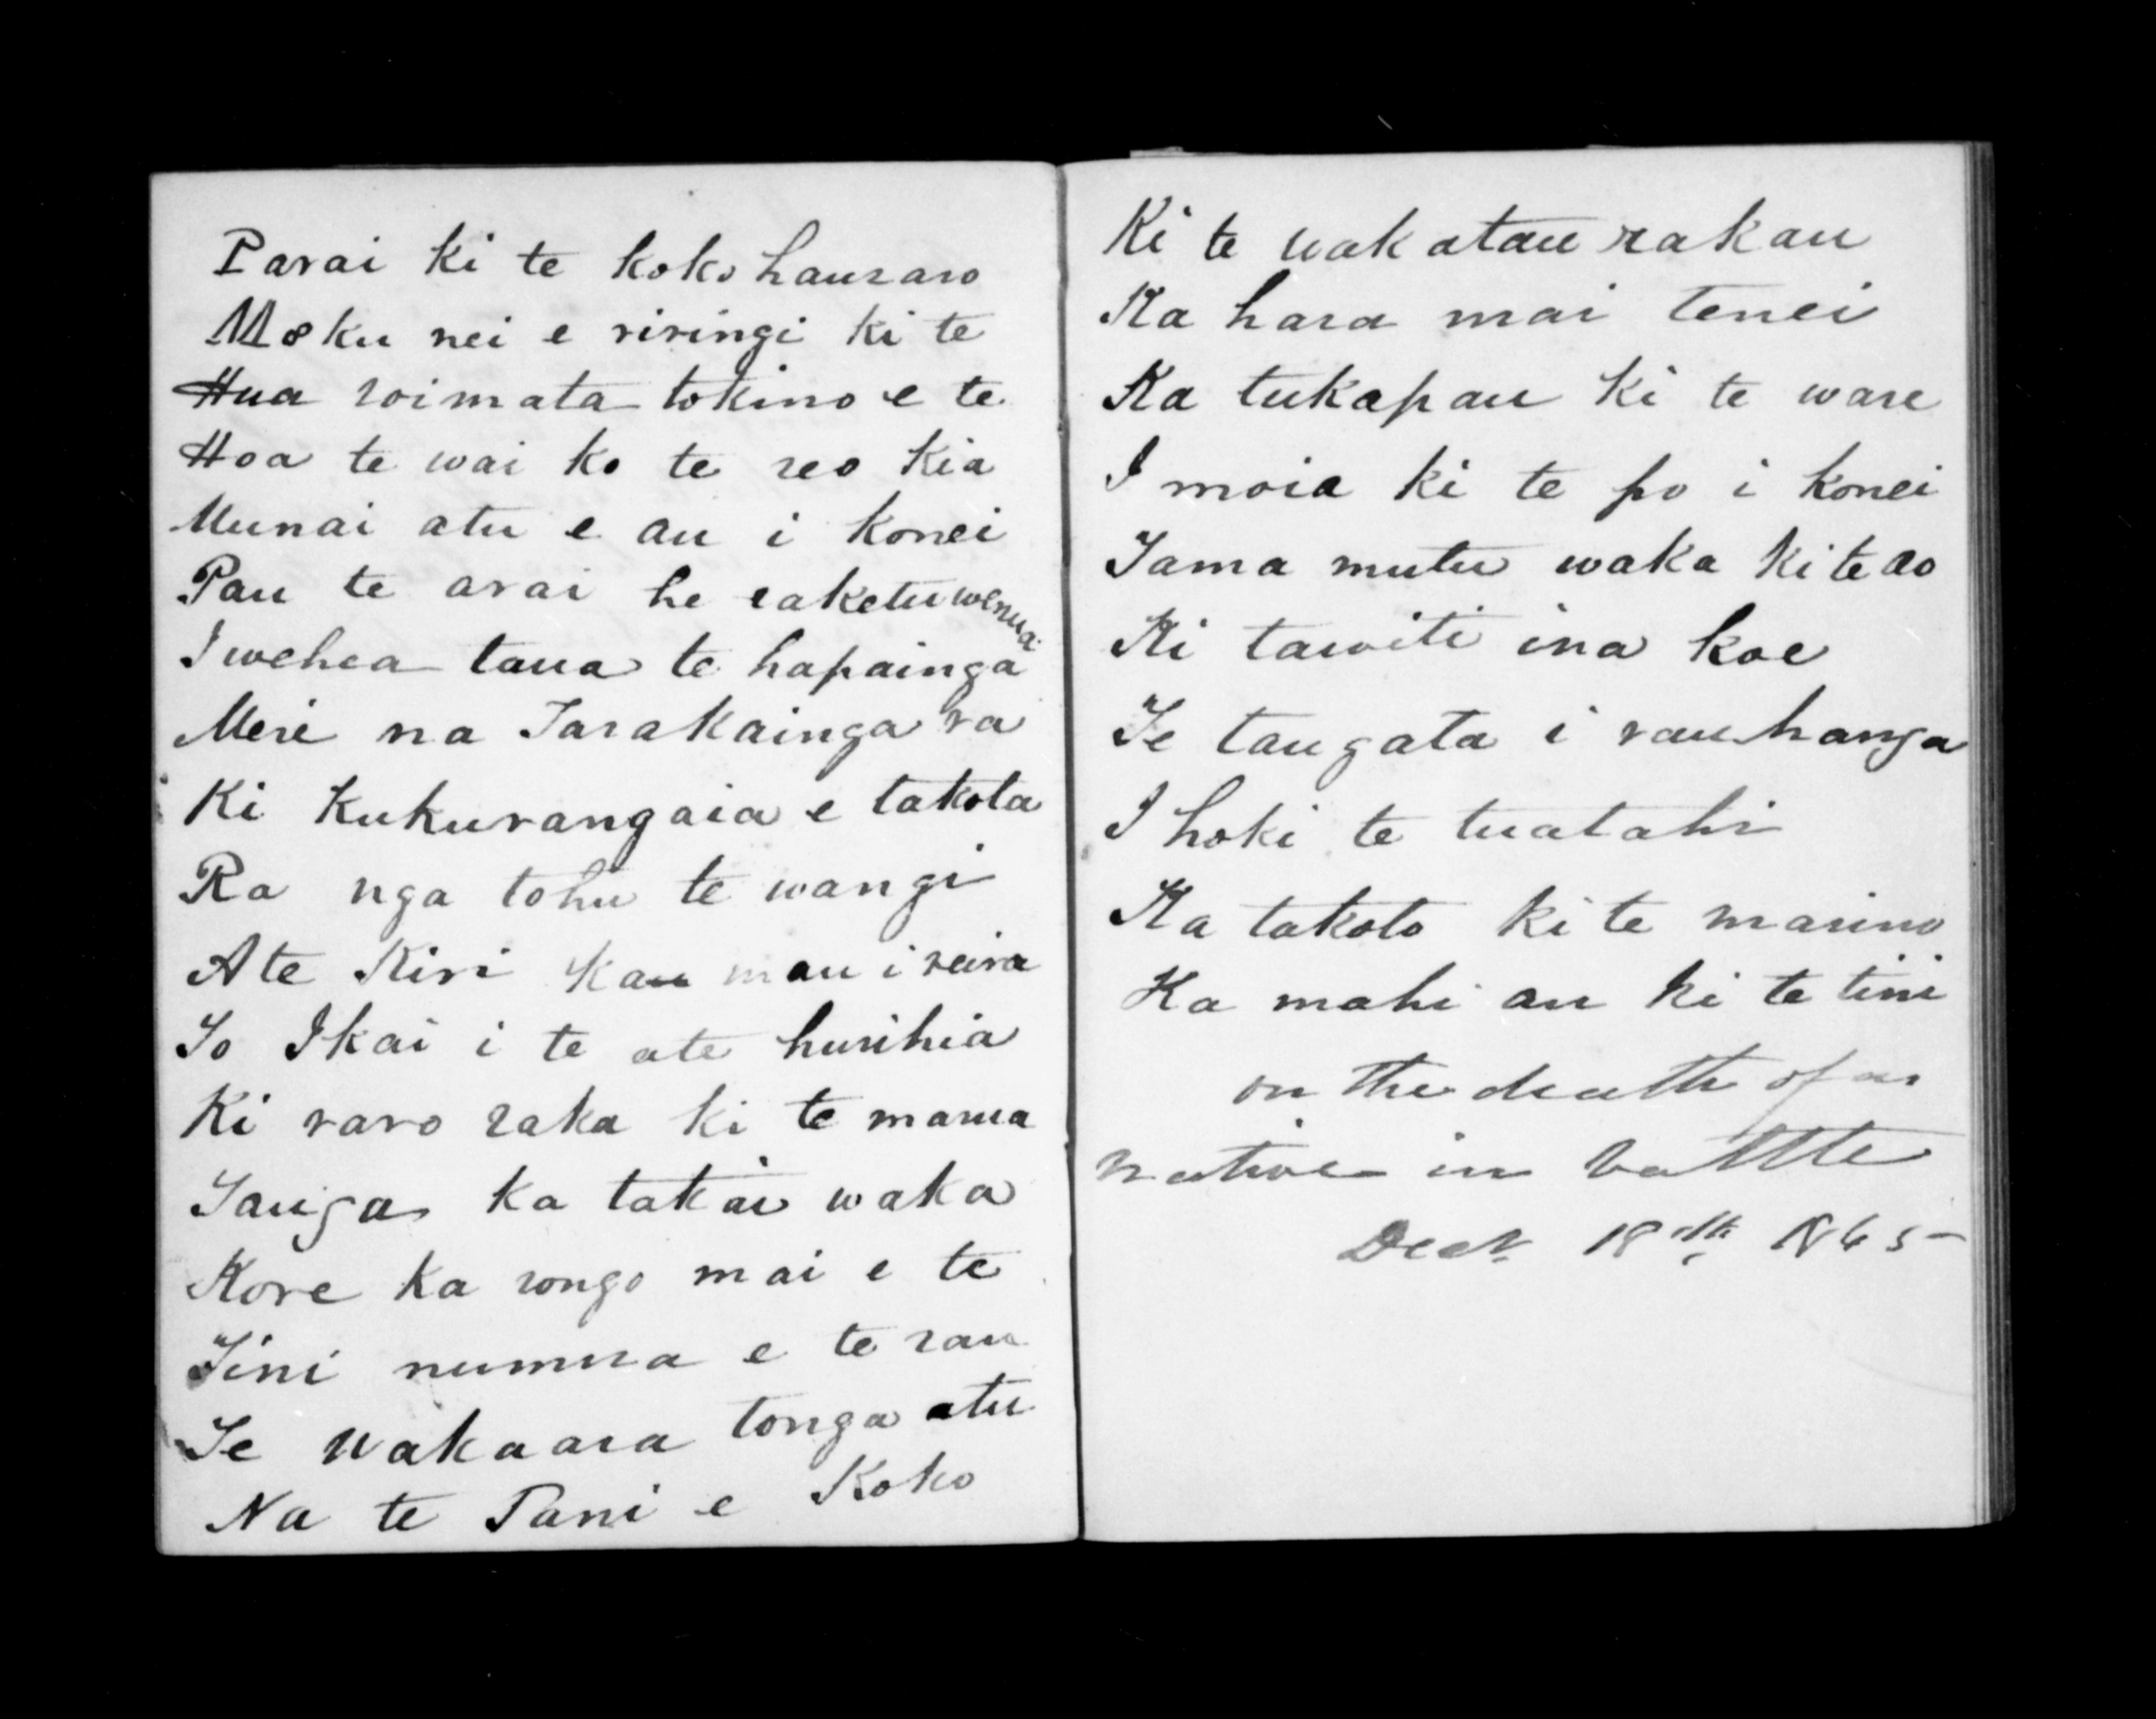 Parai ki te koko hauraro
Moku nei e riringi ki te
Hua roimata tokino e te
Hoa te wai ko te reo kia
Munai atu e au i konei
Pau te arai he raketu wenua
I wehea taua te hapainga
Mere na Tarakainga ra
Ki kukurangaia e takota
Ra nga tohu te wangi
A te Kiri kau mau i reira
To Ikai i te ate hurihia
Ki raro raka ki te marua
Taiga ka takai waka
Kore ka rongo mai e te
Tini numua e te rau
Te wakaara tonga atu
Na te Pani e Koko
Ki te wakatau rakau
Ka hara mai tenei
Ka tukapau ki te ware
I moia ki te po i konei
Tama mutu waka ki te ao
Ki tawiti ina koe
Te taugata i rauhanga
I hoki te tuatahi
Ka takoto ki te marino
Ka mahi au ki te tini
on the death of a
native in battle
Decr 18th 1865